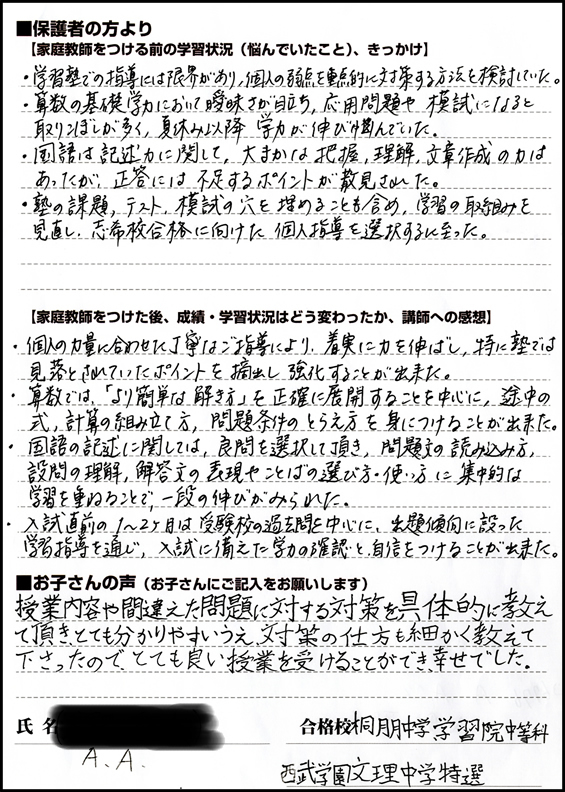 ■保護者の方より
【家庭教師をつける前の学習状況（悩んでいたこと）、きっかけ】
・学習塾での指導には限界があり、個人の弱点を重点的に対策する方法を検討していた。
・算数の基礎学力において曖昧さが目立ち、応用問題や模試になると
取りこぼしが多く、夏休み以降学力が伸び悩んでいた。
・国語は記述力に関して、大まかな把握、理解、文章作成の力は
あったが、正答には不足するポイントが散見された。
・塾の課題、テスト、模試の穴を埋めることも含め、学習の取組みを
見直し、志希校合格に向けた個人指導を選択するに至った。
【家庭教師をつけた後、成績・学習状況はどう変わったか、講師への感想】
・個人の力量に合わせた丁寧なご指導により、着実に力を伸ばし、特に塾では
見落とされていたポイントを摘出し強化することが出来た。
・算数では、「より簡単な解き方」を正確に展開することを中心に、途中の
式、計算の組み立て方、問題条件のとらえ方を身につけることが出来た。
・国語の記述に関しては、良問を選択して頂き、問題文の読み込み方、
設問の理解、解答文の表現やことばの選び方・使い方に集中的な
学習を重ねることで、一段の伸びがみられた。
・入試直前の1〜2ヶ月は受験校の過去問を中心に、出題傾向に設った
学習指導を通じ、入試に備えた学力の確認と自信をつけることが出来た。
■お子さんの声（お子さんにご記入をお願いします）
授業内容や間違えた問題に対する対策を具体的に教え
て頂きとても分かりやすいうえ、対策の仕方も細かく教えて
下さったので、とても良い授業を受けることができ、幸せでした。
氏名 合格校 桐朋中学 学習院中等科
A.A. 西武学園文理中学特選